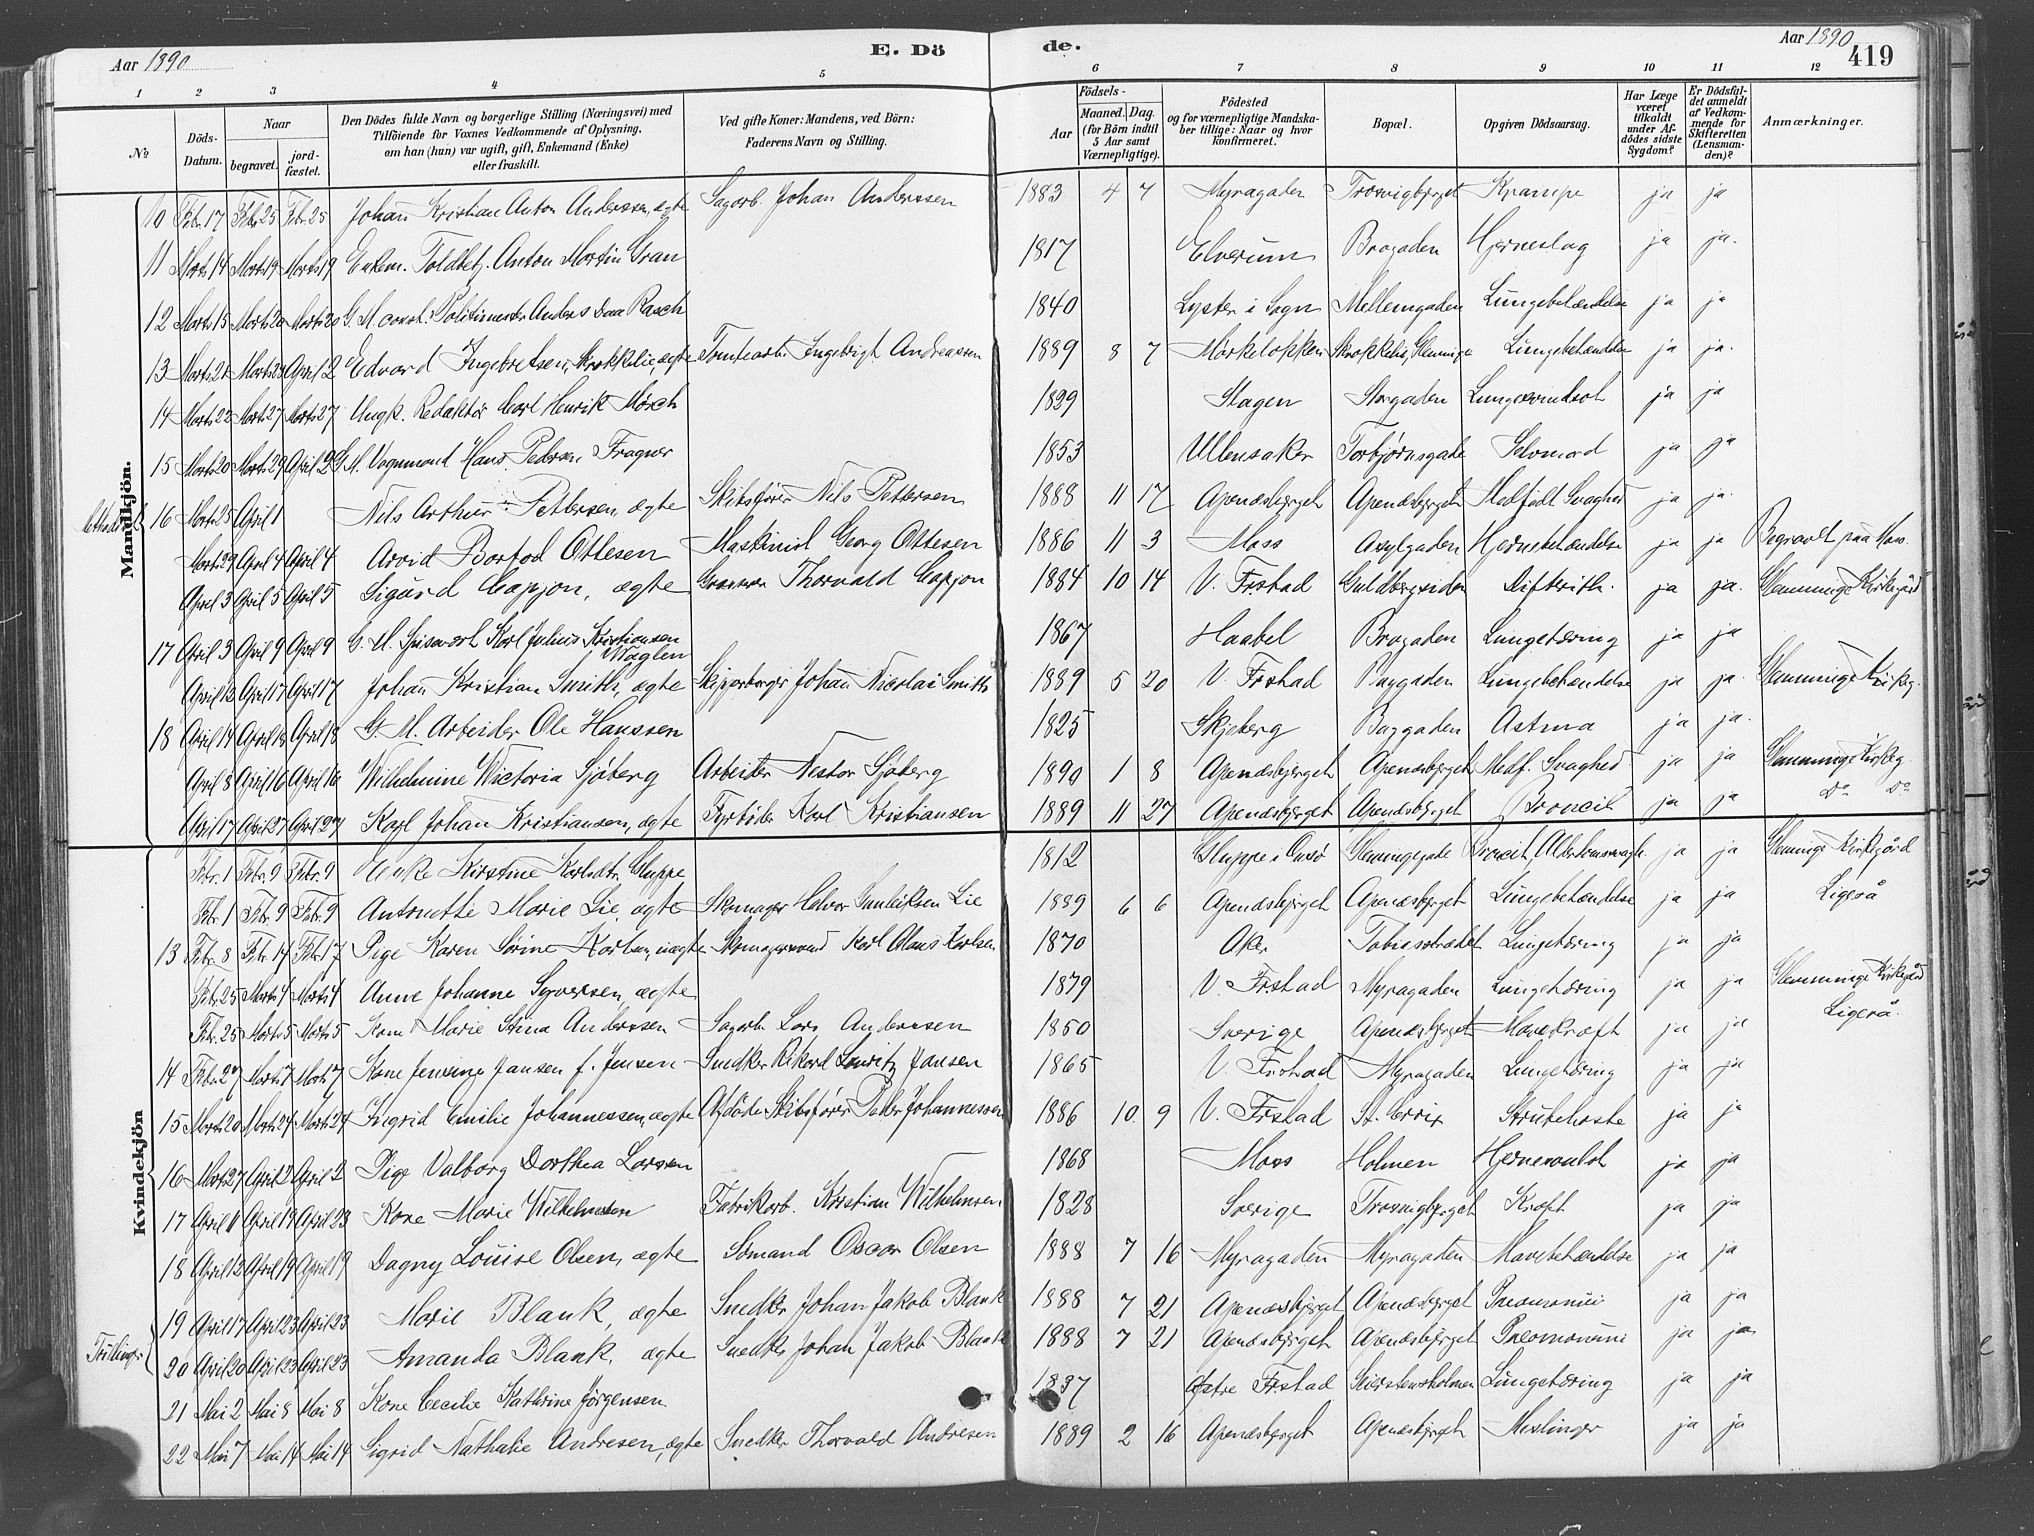 Aar 1890
E. Dö
de.
Aar 1890
419
1 2 3 4 5 6 7 8 9 10 11 12
№
Döds-Datum.
Naar
begravet.
jord-fæstet.
Den Dödes fulde Navn og borgerlige Stilling (Næringsvei) med
Tilföiende for Voxnes Vedkommende af Oplysning,
om han (hun) var ugift, gift, Enkemand (Enke)
eller fraskilt.
Ved gifte Koner: Mandens, ved Börn:
Faderens Navn og Stilling.
Aar
Födsels-
Maaned. Dag.
(for Börn indtil
5 Aar samt
Værnepligtige).
Födested
og for værnepligtige Mandska-
ber tillige: Naar og hvor
konfirmeret.
Bopæl.
Opgiven Dödsaarsag.
Har Læge
været
tilkaldt
under Af-
dödes sidste
Sygdom?
Er Dödsfal-
det anmeldt
af Vedkom-
mende for
Skifteretten
(Lensman-
den)?
Anmærkninger.
Mandkjön.
10 Febr. 17 Febr. 25 Febr. 25 Johan Kristian Anton Anderssen, ægte Sagarb. Johan Anderssen 1883 4 7 Myragaden Trosvigbjerget Krampe ja ja
11 Marts 14 Marts 19 Marts 19 Enkem. Toldbetj. Anton Martin Gran 1817 Elverum Brogaden Hjerneslag ja ja.
12 Marts 15 Marts 20 Marts 20 G. M. const. Politimester Anders Daa Rasch 1840 Lyster i Sogn Mellemgaden Lungebetændelse ja ja
13 Marts 21 Marts 28 April 2 Edvard Ingebretsen, Skrokkelie, ægte Tomtearb. Ingebrigt Andreassen 1889 8 7 Mørkeløkken Skrokkelie, Glemminge Lungebetændelse ja ja.
14 Marts 22 Marts 27 Marts 27 Ungk. Redaktør Carl Henrik Mørch 1829 Slagen Storgaden ja ja
15 Marts 20 Marts 29 April 2 G. M. Vognmand Hans Pedersen Fragner 1853 Ullensaker Torbjørnsgade Selvmord ja ja
16 Marts 25 April 1 Nils Arthur Pettersen, ægte Skibsfører Nils Pettersen 1888 11 17 Apenæsbjerget Apenæsbjerget Medfødt Svaghed ja ja.
Marts 29 April 4 April 4 Arvid Ottesen Maskinist Georg Ottesen 1886 11 3 Moss Asylgaden Hjernebetændelse ja ja Begravet paa Moss.
April 3 April 5 April 5 Sigurd Capjon, ægte Thorvald Capjon 1884 10 14 V. Frstad Guldbergsiden Difterith. ja ja. Glemminge Kirkegård
17 April 3 April 9 April 9 G. M. Karl Julius Kristiansen Waglen 1867 Haabel Brogaden Lungetæring ja ja
April 13 April 17 April 17 Johan Kristian Smith, ægte Skipperborger Johan Nicolai Smith 1889 5 20 V. Frstad Baggaden Lungebetændelse ja ja. Glemminge Kirkeg.
18 April 14 April 18 April 18 G. M. Arbeider Ole Hanssen 1825 Skjeberg Baggaden Astma ja ja.
April 8 April 16 April 16 Wilhelmine Wictoria Sjöberg Arbeider Nestor Sjöberg 1890 1 8 Apenæsbjerget Apenæsbjerget Medf. Svaghed ja ja Glemminge Kirkeg.
April 17 April 27 April 27 Karl Johan Kristiansen, ægte Fyrbøder Karl Kristiansen 1889 11 27 Apenæsbjerget Apenæsbjerget Broncit ja ja Do Do
Kvindekjön
Febr. 1 Febr. 9 Febr. 9 Enke Kirstine Karlsdtr. Gluppe 1812 Gluppe i Onsø Glemmingegade Broncit, Alderdomssvagh. ja ja Glemminge Kirkegård
Febr. 1 Febr. 9 Febr. 9 Antonette Marie Lie, ægte Skomager Halvor Gunleiksen Lie 1889 6 6 Apenæsbjerget Apenæsbjerget Lungebetændelse ja ja Ligeså
13 Febr. 8 Febr. 14 Febr. 17 Pige Karen Sørine Karlsen, uægte Skomagersvend Karl Olaus Karlsen 1870 Aker Tobiasstrædet Lungetæring ja ja
Febr. 25 Marts 4 Marts 4 Anne Johanne Syversen, ægte 1879 V. Frstad Myragaden Lungetæring ja ja Glemminge Kirkegård
Febr. 25 Marts 5 Marts 5 Kone Marie Stina Anderssen Sagarb. Lars Anderssen 1850 Sverige Apenæsbjerget Mavekræft ja ja Ligeså.
14 Febr. 27 Marts 7 Marts 7 Kone Jensine Jansen f. Jensen Snedker Rikard Lauritz Jansen 1865 V. Frstad Myragaden Lungetæring ja ja
15 Marts 20 Marts 24 Marts 24 Ingrid Emilie Johannessen, ægte Afdøde Skibsfører Peder Johannessen 1886 10 9 V. Frstad St. Croix Strubehoste ja ja
16 Marts 27 April 2 April 2 Pige Valborg Dorthea Larsen 1868 Moss Holmen ja ja
17 April 11 April 19 April 23 Kone Marie Wilhelmsen Fabrikarb. Kristian Wilhelmsen 1828 Sverige Trosvigbjerget Kræft ja ja
18 April 12 April 19 April 19 Dagny Louise Olsen, ægte Sømand Oscar Olsen 1888 7 16 Myragaden Myragaden Mavebetændelse ja ja
Tvillinger
19 April 17 April 23 April 23 Marie Blank, ægte Snedker Johan Jakob Blank 1888 7 21 Apenæsbjerget Apenæsbjerget Pneumonui ja ja
20 April 20 April 23 April 23 Amanda Blank, ægte Snedker Johan Jakob Blank 1888 7 21 Apenæsbjerget Apenæsbjerget Pneomonuni ja ja
21 Mai 2 Mai 8 Mai 8 Kone Cecilie Kathrine Jørgensen 1837 Østre Frstad Kirstensholmen Lungetæring ja ja
22 Mai 7 Mai 14 Mai 14 Sigrid Nathalie Andresen, ægte Snedker Thorvald Andresen 1889 2 16 Apenæsbjerget Apenæsbjerget Meslinger ja ja